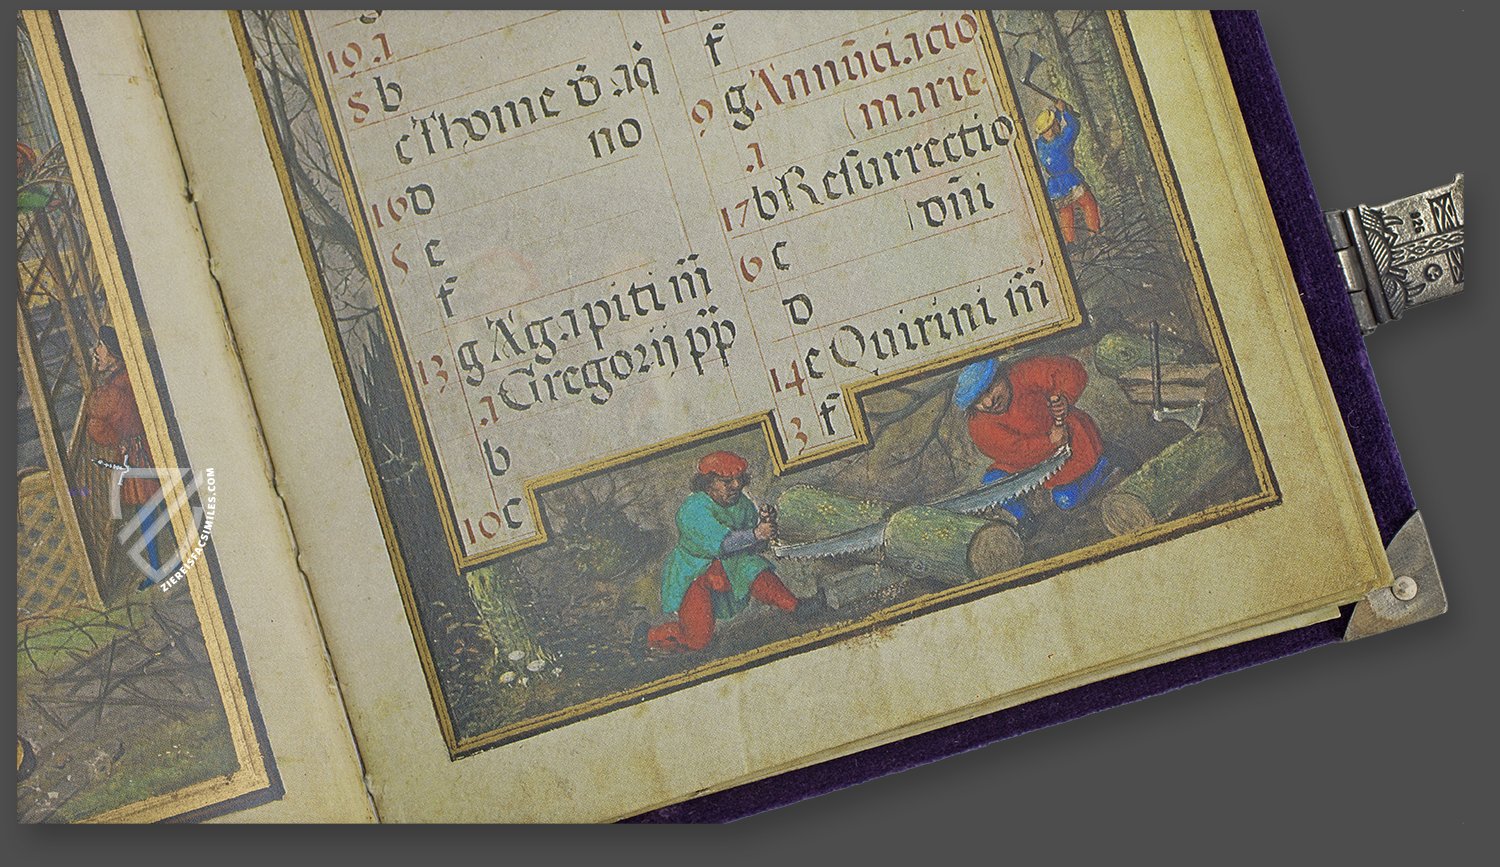 19 a
8 b
c Thome d̄ aq̇
no
16 d
5 e
f
13 g Agapiti m̄
a Gregorij pp̄
b
10 c
f
9 g Annūciacio
(marie.
a
17 b Resurrectio
dn̄i
6 c
d
14 e Quirini m̄
3 f
ZIEREISFACSIMILES.COM